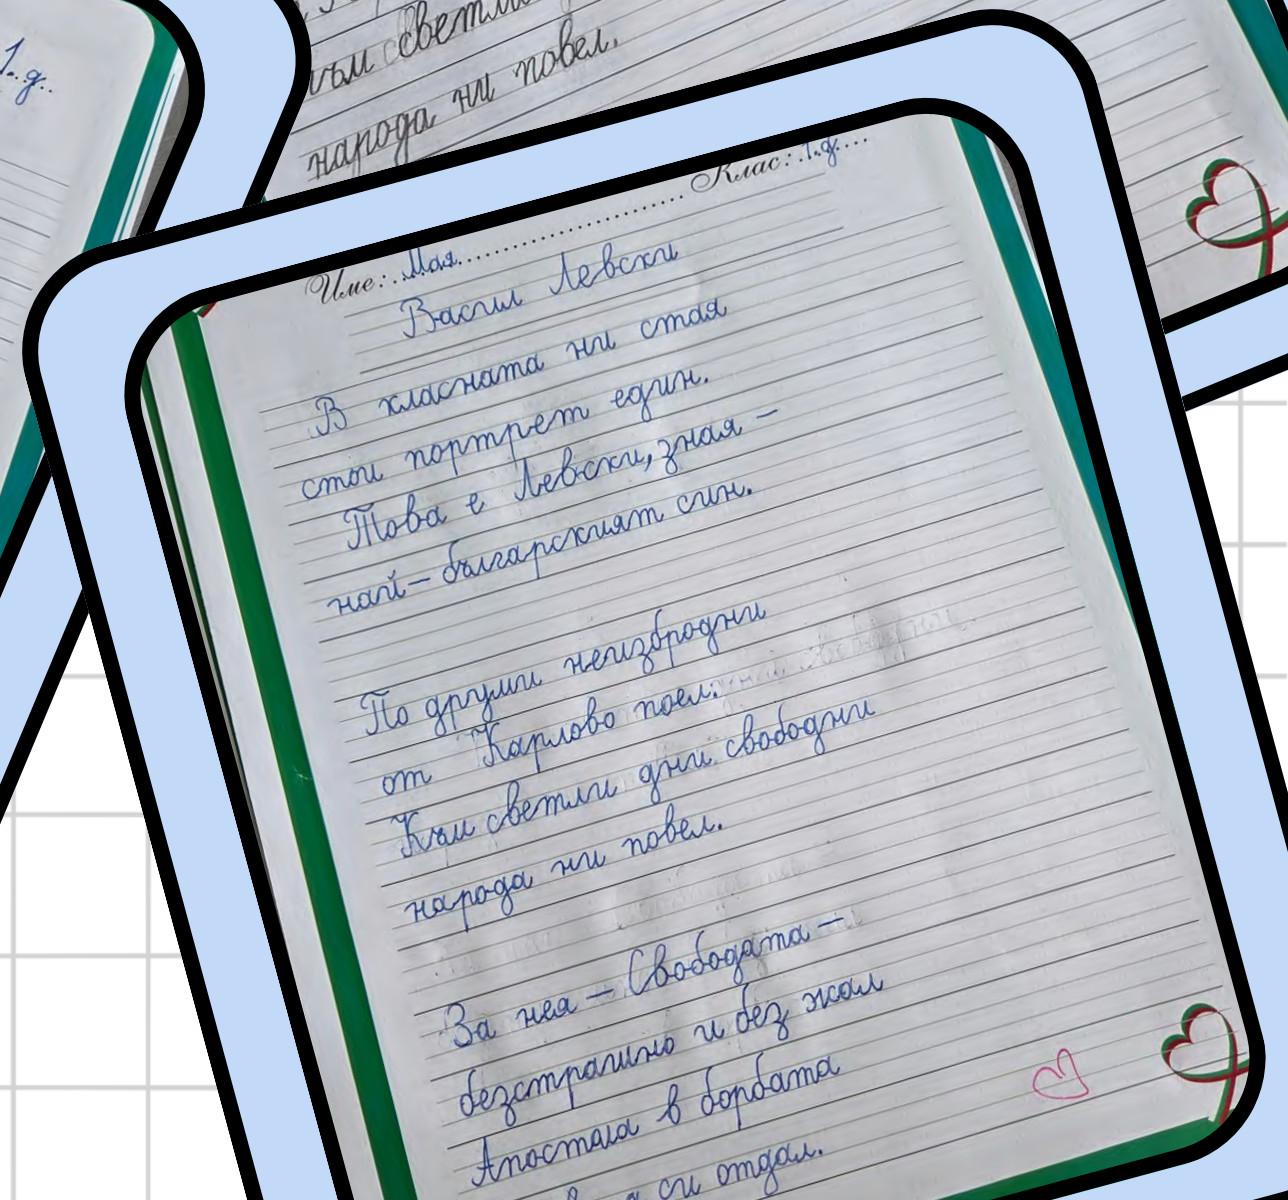 1.д.
към светли
народа ни повел.
Име: Мая Клас: 1.д.
Васил Левски
В класната ни стая
стои портрет един.
Това е Левски, зная –
най – българският син.
По друми неизбродни
от Карлово поел.
Към светли дни свободни
народа ни повел.
За нея – Свободата –
безстрашно и без жал
Апостола в борбата
си отдал.